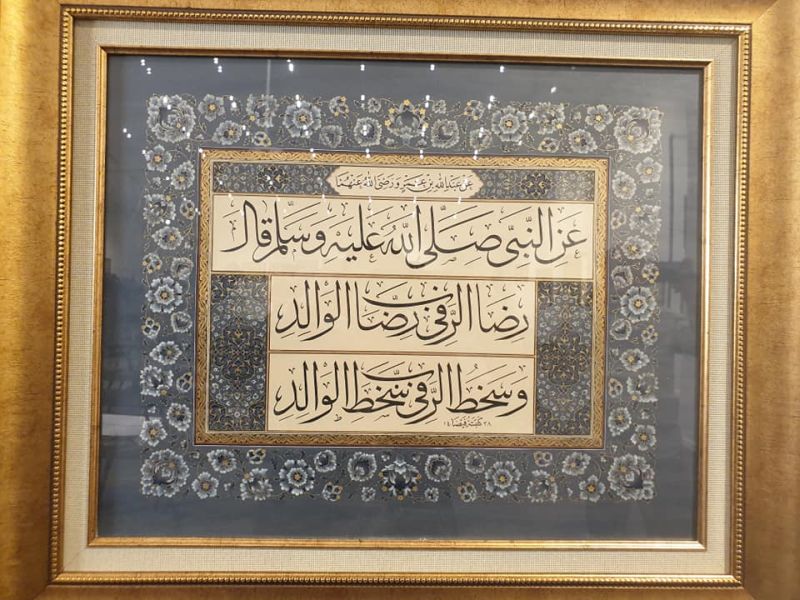 عَنْ عَبْدِ اللهِ بْنِ عَمْرٍو رَضِيَ اللهُ عَنْهُمَا
عَنِ النَّبِيِّ صَلَّى اللهُ عَلَيْهِ وَسَلَّمَ قَالَ
رِضَا الرَّبِّ فِي رِضَا الْوَالِدِ
وَسَخَطُ الرَّبِّ فِي سَخَطِ الْوَالِدِ